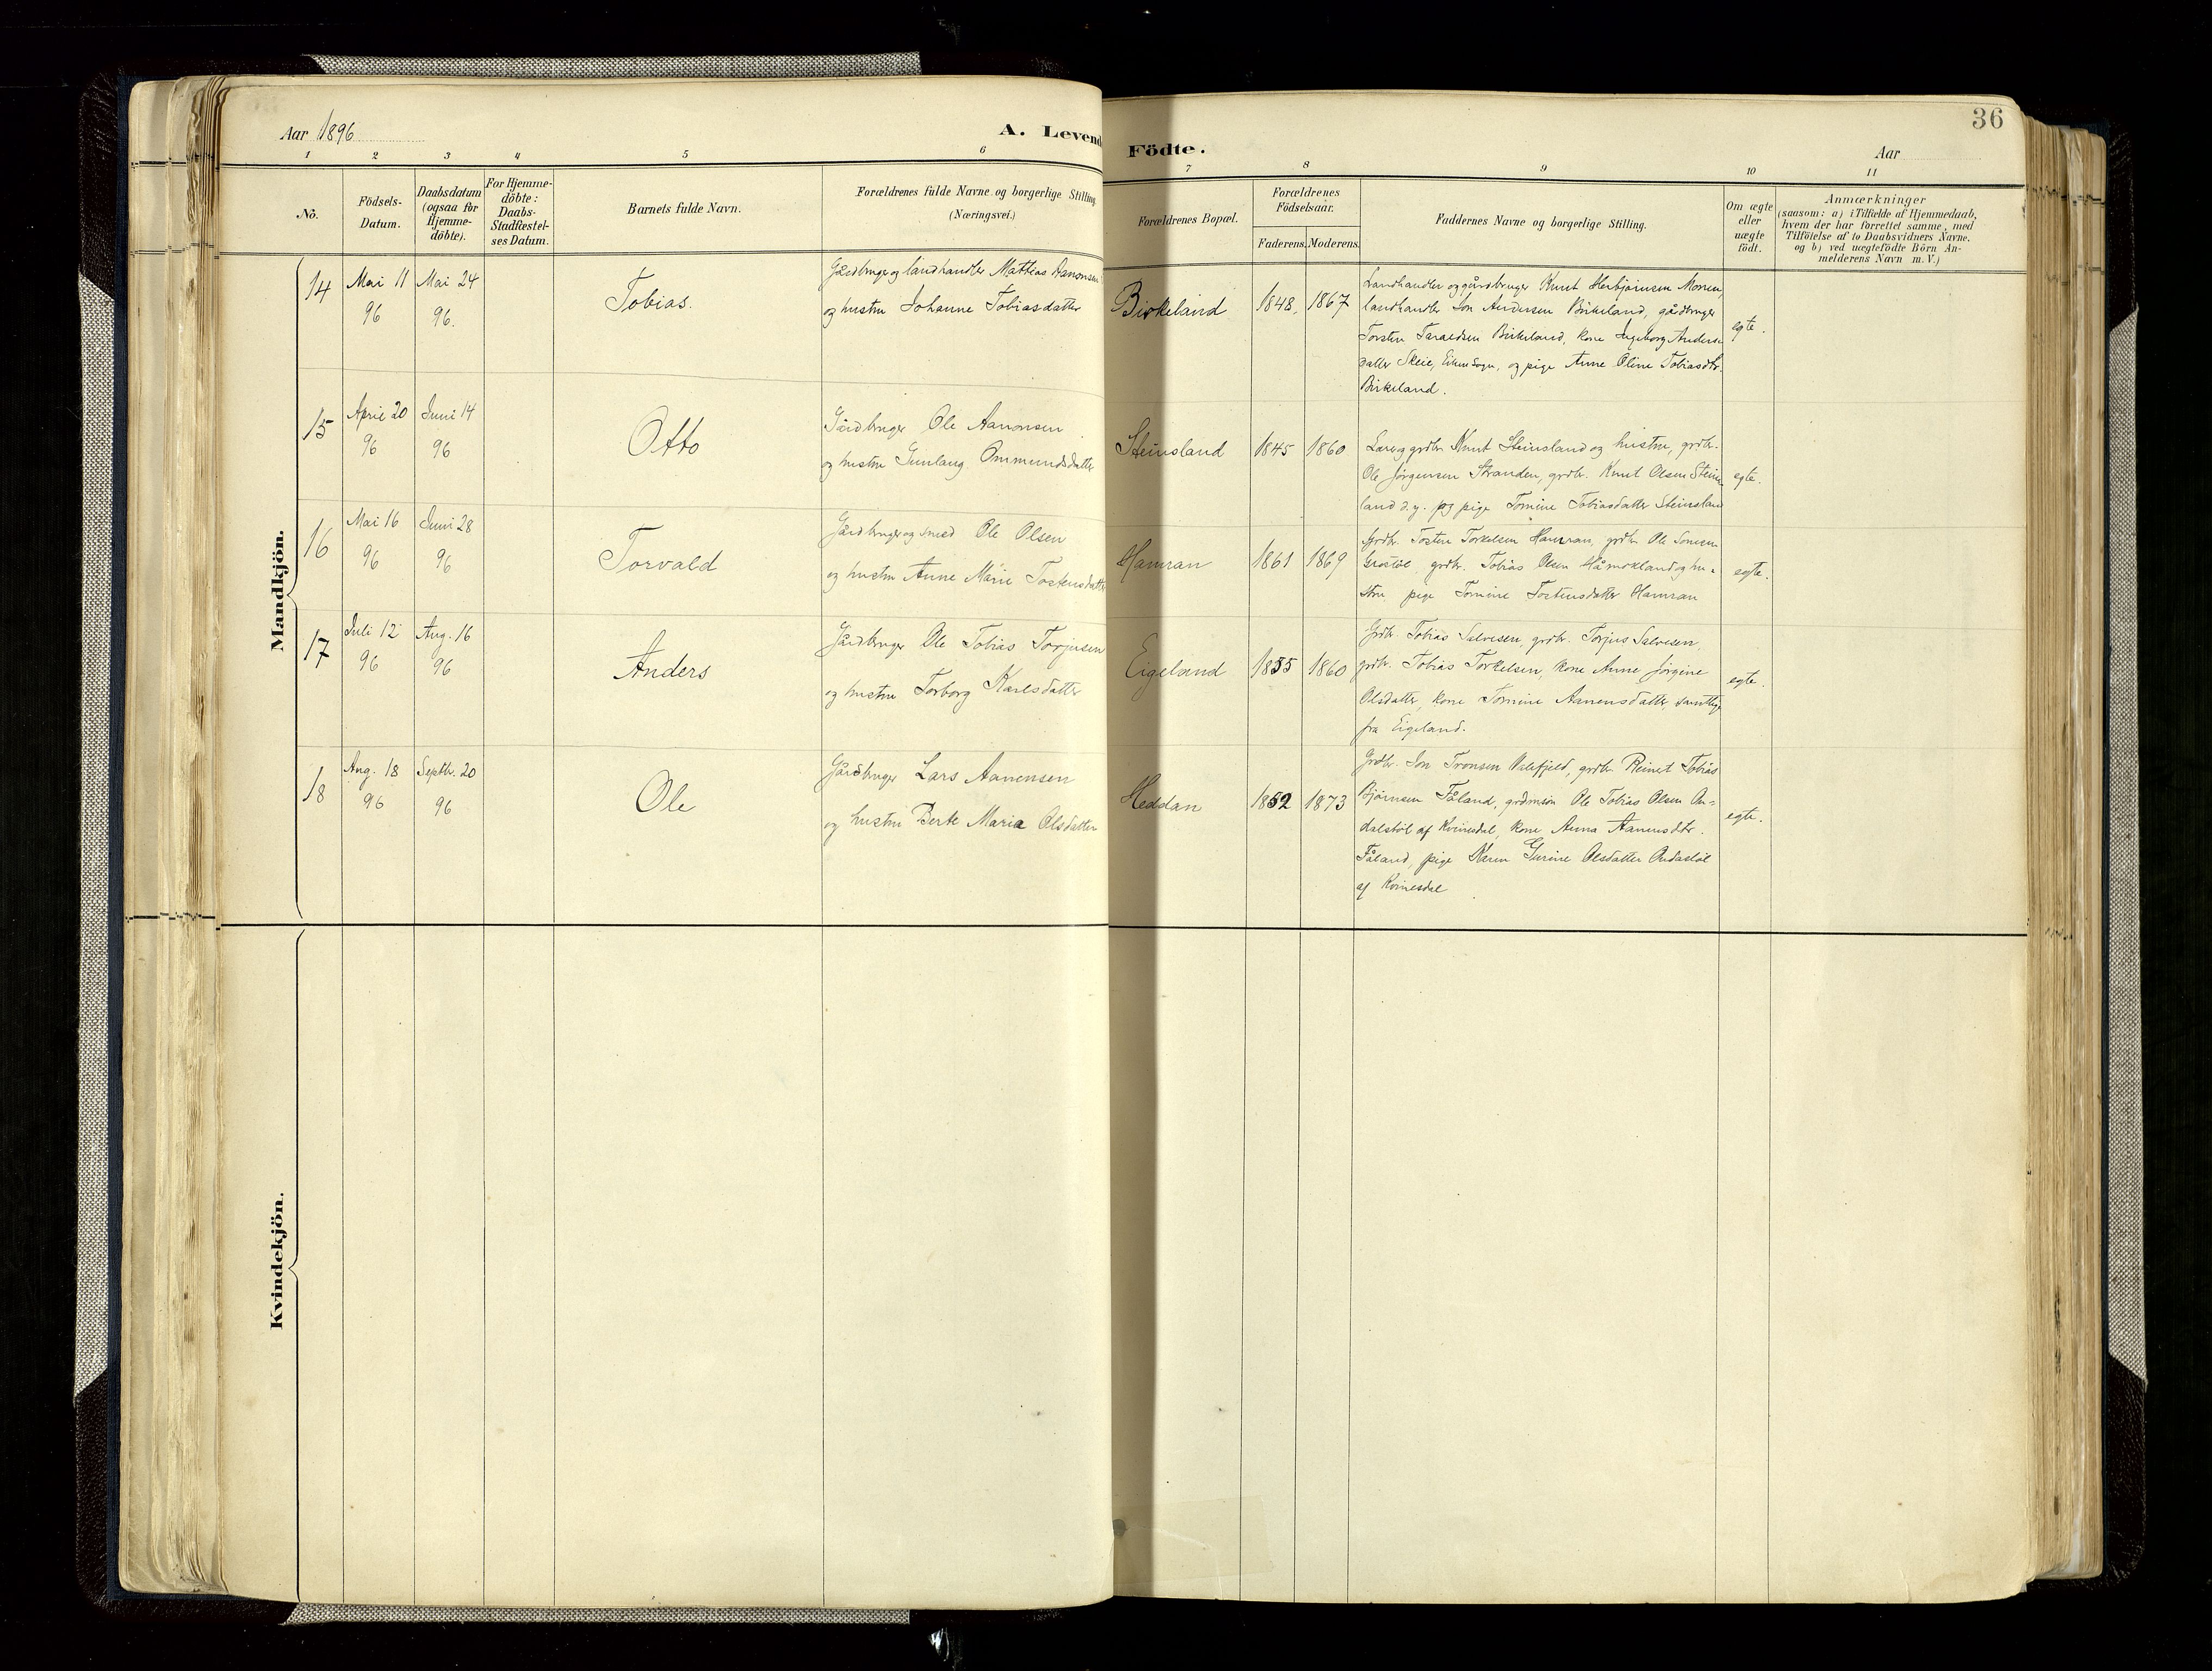 Aar 1896
A. Levend
Födte.
Aar
36
1 2 3 4 5 6 7 8 9 10 11
No.
Födsels-
Datum.
Daabsdatum
(ogsaa for
Hjemme-
døbte).
For Hjemme-
döbte:
Daabs-
Stadfæstel-
ses Datum.
Barnets fulde Navn.
Forældrenes fulde Navne og borgerlige Stilling
(Næringsvei.)
Forældrenes Bopæl.
Forældrenes
Födselsaar.
Faderens. Moderens.
Faddernes Navne og borgerlige Stilling.
Om ægte
eller
uægte
födt.
Anmærkninger
(saasom: a) i Tilfælde af Hjemmedaab,
hvem der har forrettet samme, med
Tilföielse af to Daabsvidners Navne.
og b) ved uægtefödte Börn An-
melderens Navn m. V.)
Mandkjön.
14
Mai 11
96
Mai 24
96.
Tobias.
Gårdbruger og landhandler Mathias Aanonsen
og hustru Johanne Tobiasdatter
Birkeland
1848. 1867
Landhandler og gårdbruger Knut Herbjørnsen Monen,
landhandler Jon Andersen Birkeland, gårdbruger
Torsten Taraldsen Birkeland, kone Ingeborg Anders-
datter Skeie, Eiken Sogn, og pige Anne Oline Tobiasdtr.
Birkeland.
egte.
15
April 20
96
Juni 14
96
Otto
Gårdbruger Ole Aanonsen
og hustru Gunlaug Ommundsdatter
Steinsland
1845 1860
Lærer og grdbr. Knut Steinsland og hustru, grdbr.
Ole Jørgensen Stranden, grdbr. Knut Olsen Steins-
land d.y. og pige Tomine Tobiasdatter Steinsland
egte.
16
Mai 16
96
Juni 28
96
Torvald
Gårdbruger og smed Ole Olsen
og hustru Anne Marie Tostensdatter
Hamran
1861 1869
Grdbr. Tosten Torkelsen Hamran, grdbr. Ole
grdbr. Tobias Olsen Håmokland og hu-
stru pige Tomine Tostensdatter Hamran
egte.
17
Juli 12
96
Aug. 16
96
Anders
Gårdbruger Ole Tobias Torjusen
og hustru Torborg Karlsdatter
Eigeland
1855 1860
Grdbr. Tobias Salvesen, grdbr. Torjus Salvesen,
grdbr. Tobias Torkelsen, kone Anne Jørgine
Olsdatter, kone Tomine Aanensdatter, samtlige
fra Eigeland.
egte.
18
Aug. 18
96
Septbr. 20
96
Ole
Gårdbruger Lars Aanensen
og hustru Berte Maria Olsdatter
Heddan
1852 1873
Grdbr. Jon Tronsen Valefjeld, grdbr. Reinert Tobias
Bjørnsen Fåland, grdmsøn Ole Tobias Olsen An-
dalstøl af Kvinesdal, kone Anna Aanensdtr.
Fåland, pige Karen Gurine Olsdatter Andastøl
af Kvinesdal
egte.
Kvindekjön.